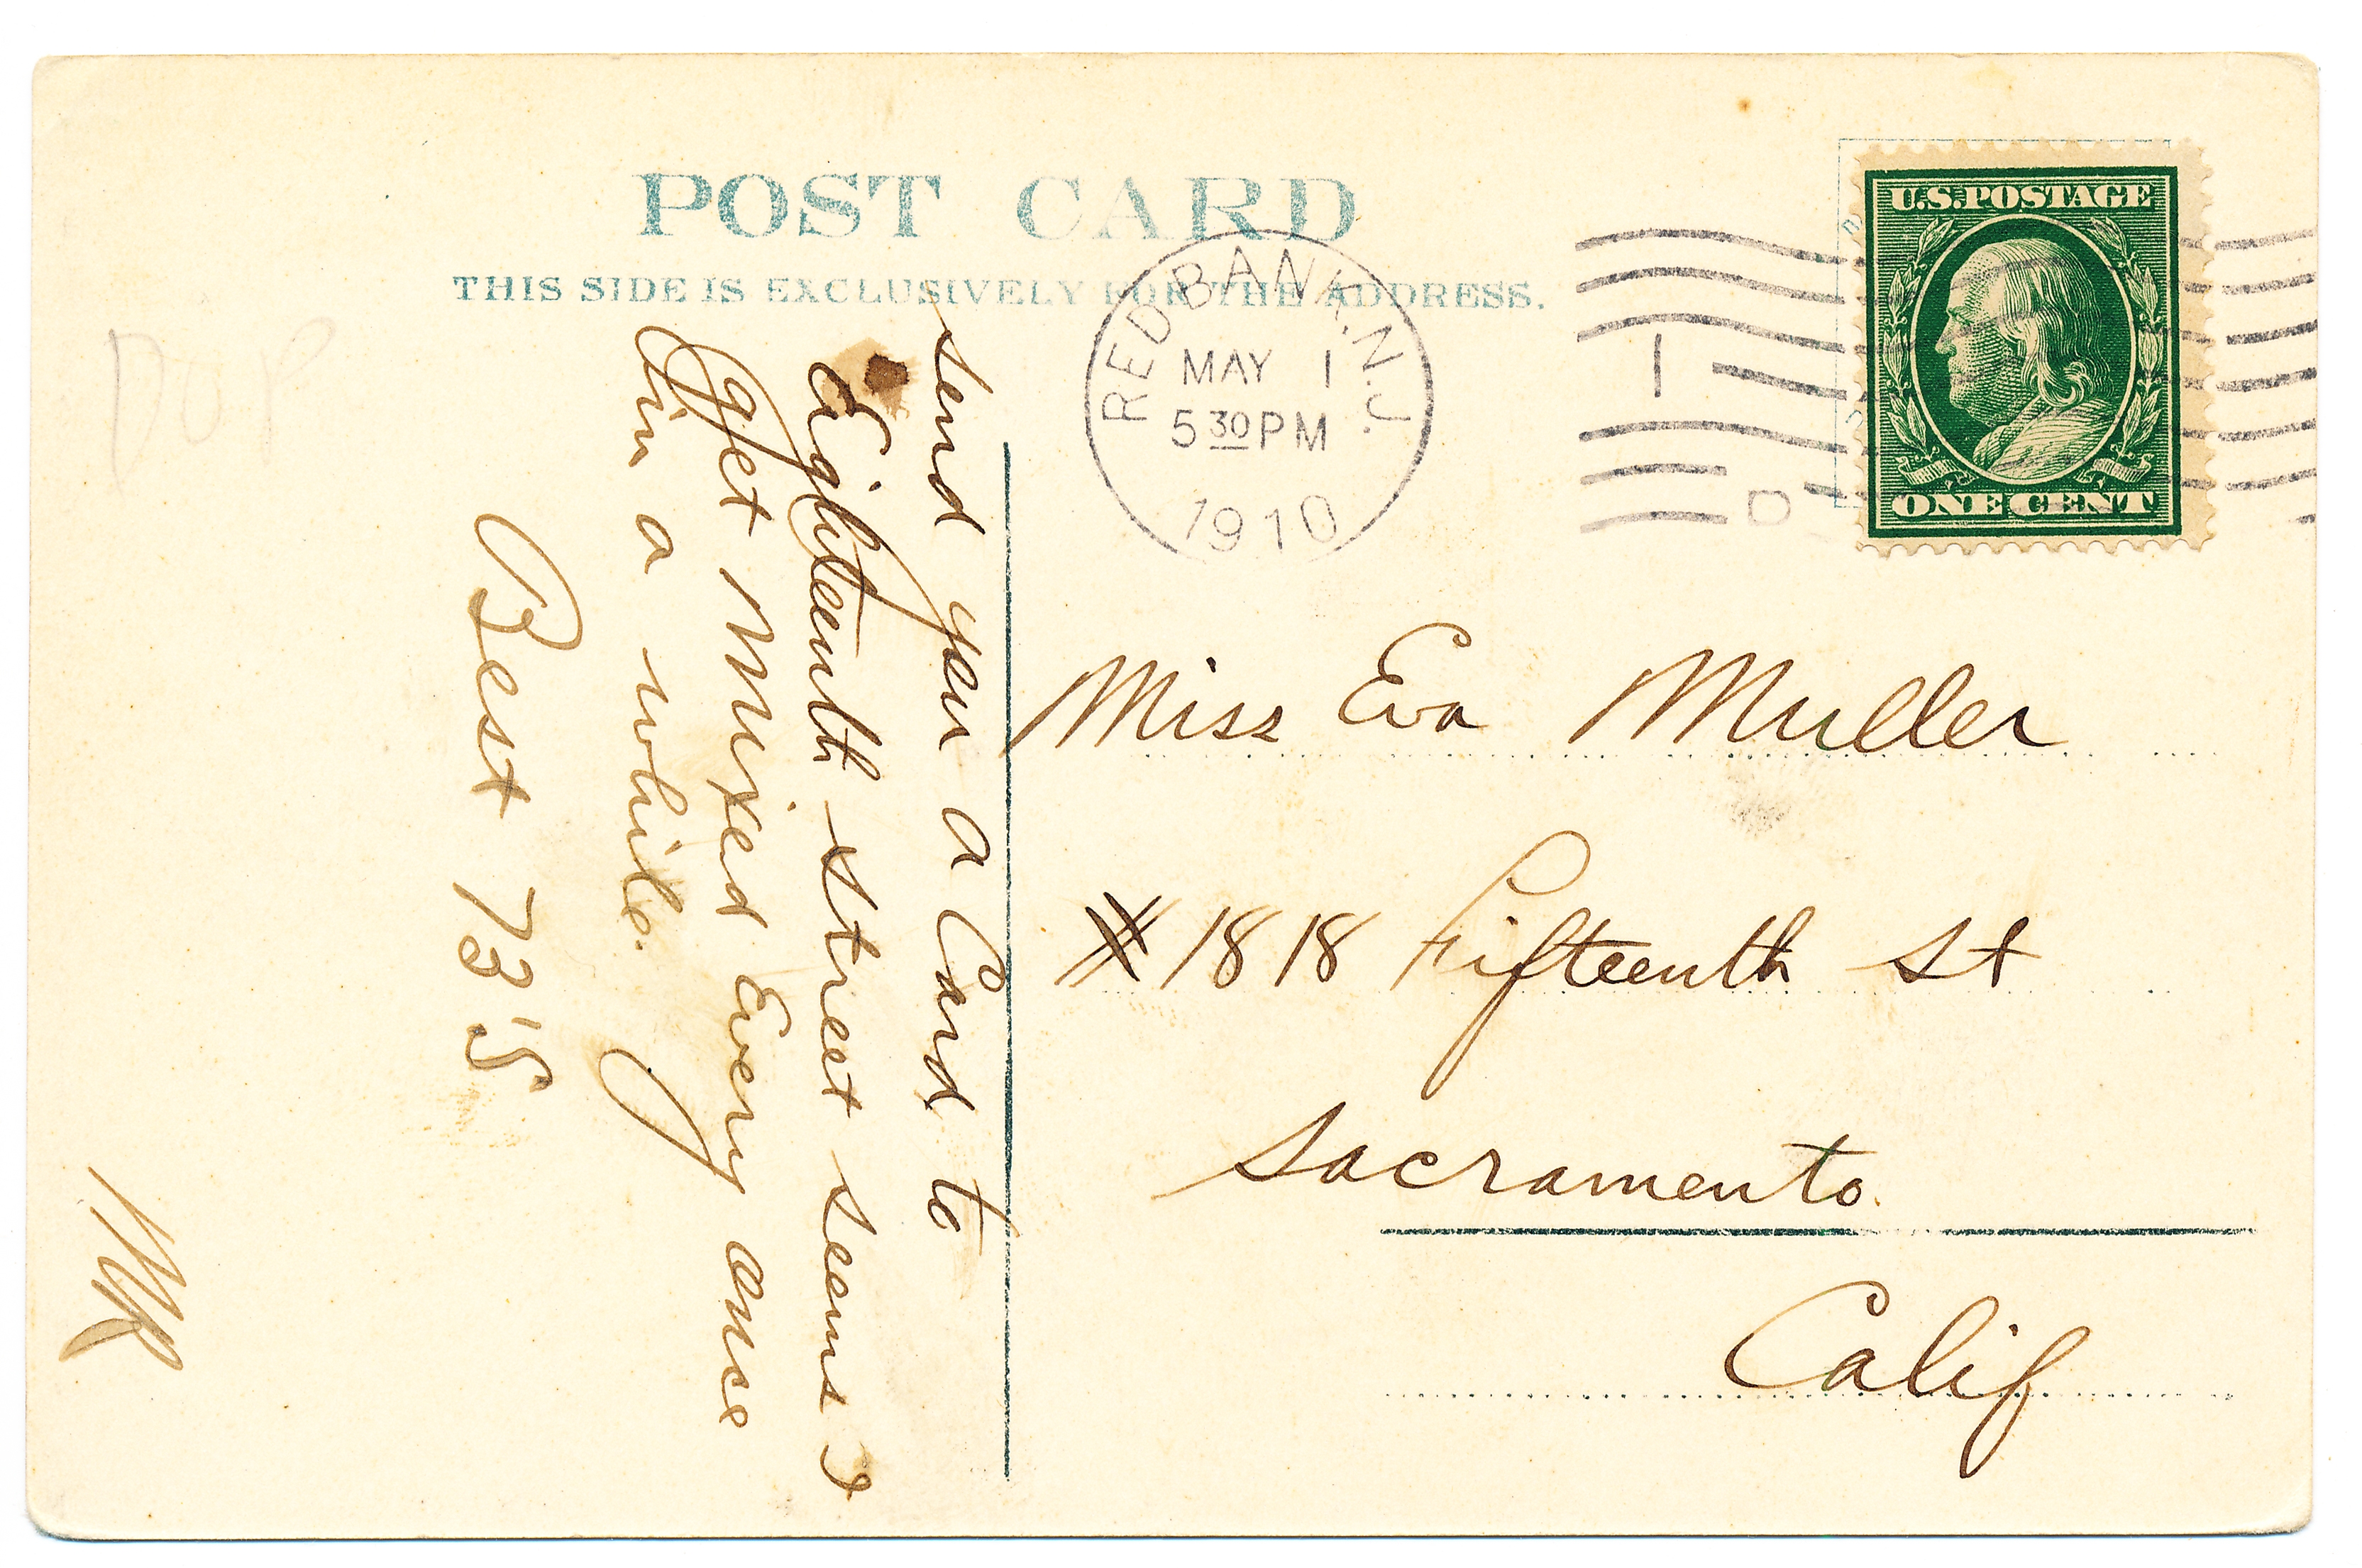 POST CARD
THIS SIDE IS EXCLUSIVELY FOR THE ADDRESS.
RED BANK, N.J.
MAY 1
5 30 PM
1910
1
D
U.S. POSTAGE
ONE CENT
send you a Card to
Eighteenth street seems I
get Mixed Every once
in a while.
Best 73's
Miss Eva Muller
# 1818 Fifteenth St
Sacramento
Calif